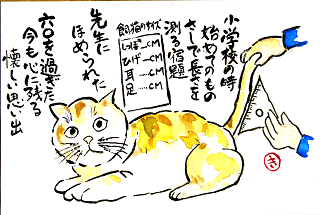 小学校の時
始めてのもの
さしで長さを
測る宿題
飼猫のサイズ
しっぽ…CM
ひげ…CM
耳……CM
足……CM
先生に
ほめられた
六〇を過ぎた
今も心に残る
懐しい思い出
き